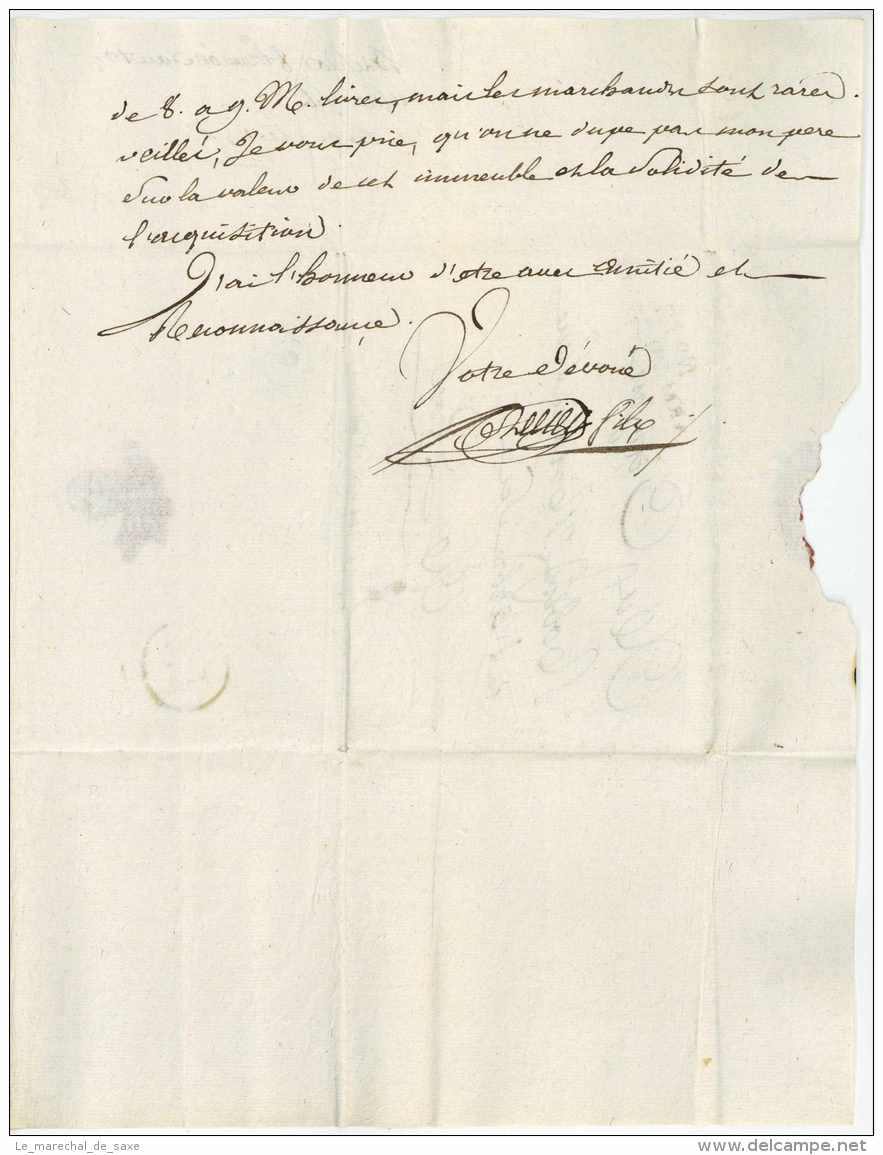 de 8. a 9. M. livres, mais les marchands sont rares.
veillés, Je vous prie, qu'on ne dupe pas mon pere
sur la valeur de cet immeuble et la solidité de
l'acquisition.
J'ai l'honneur d'etre avec amitié et
Reconnaissance.
Votre dévoué
fils
Le_marechal_de_saxe
delcampe.net